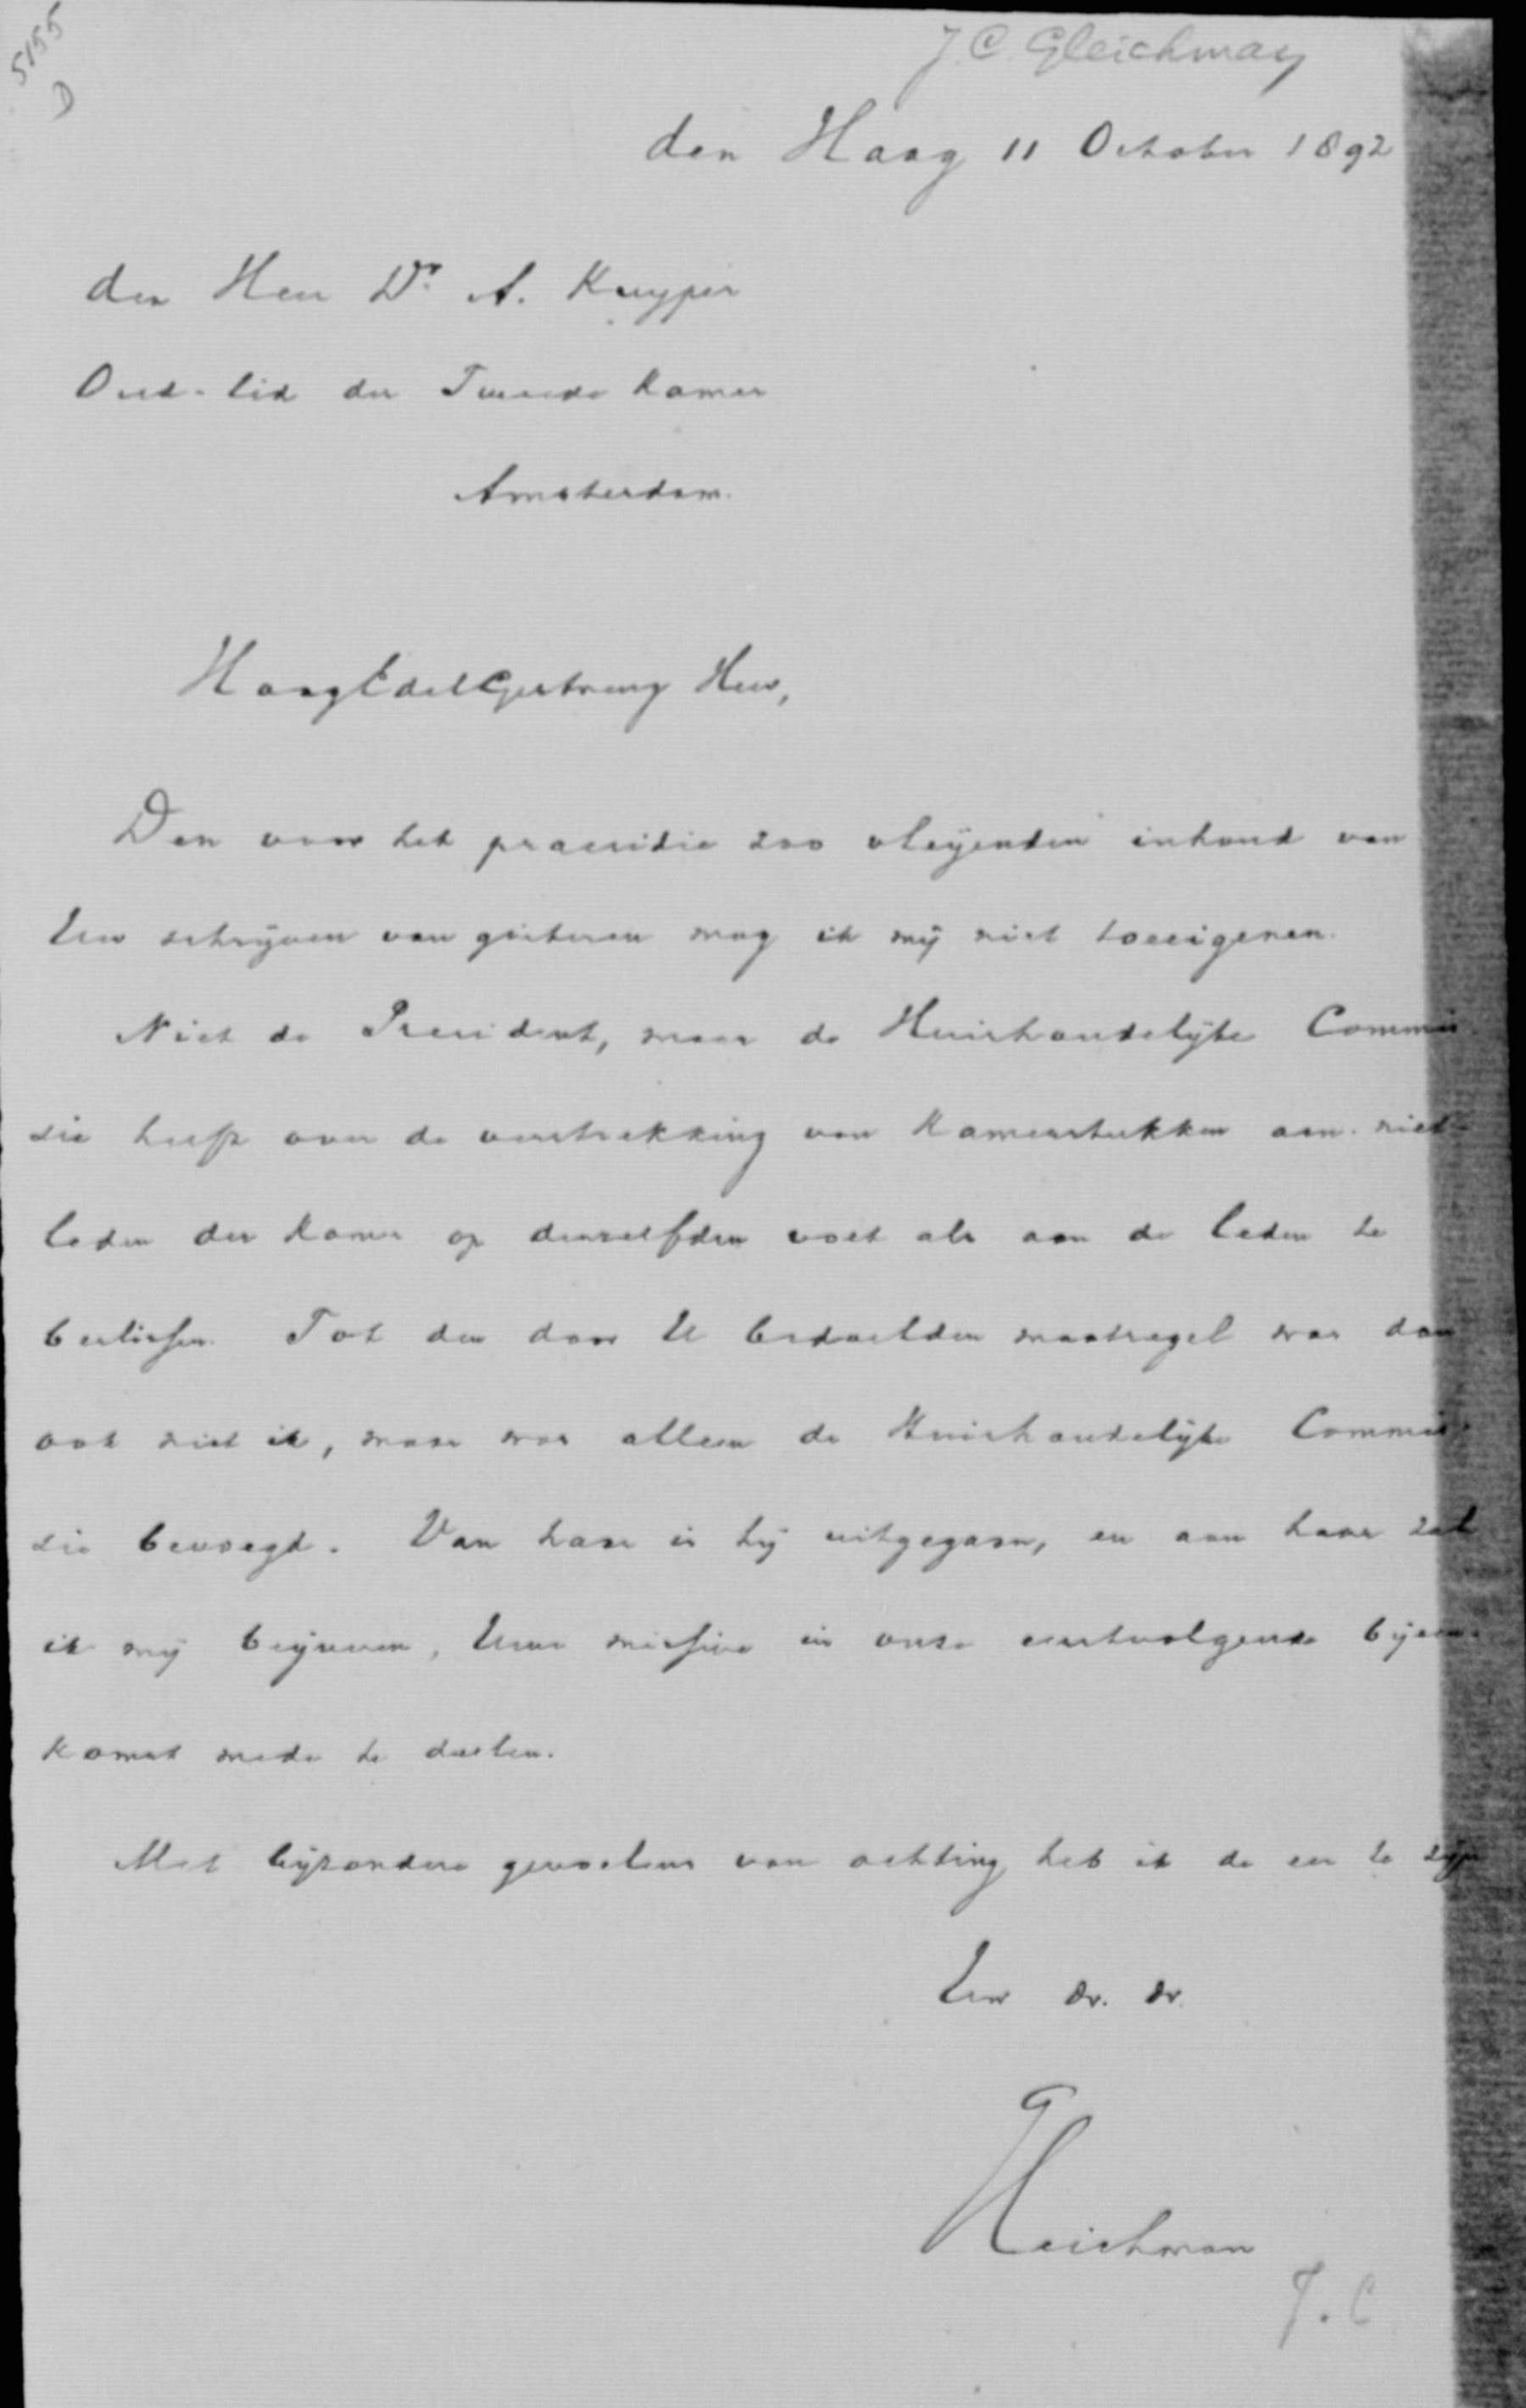 5155
D
J. C. Gleichman
den Haag 11 October 1892
den Heer Dr. A. Kuyper
Oud-lid der Tweede Kamer
Amsterdam.
HoogEdelGestreng Heer,
Den voor het praesidie zoo vleijenden inhoud van
Uw schrijven van gisteren mag ik mij niet toeeigenen.
Niet de President, maar de Huishoudelijke Commis-
sie heeft over de verstrekking van Kamerstukken aan niet-
leden der Kamer op denzelfden voet als aan de leden te
beslissen. Tot den door U bedoelden maatregel was dan
ook niet ik, maar was alleen de Huishoudelijke Commis-
sie bevoegd. Van haar is hij uitgegaan, en aan haar zal
ik mij beijveren, Uwe missive in onze eerstvolgende bijeen-
komst mede te deelen.
Met bijzondere gevoelens van achting heb ik de eer te zijn
Uw dv. dr.
Gleichman
J. C